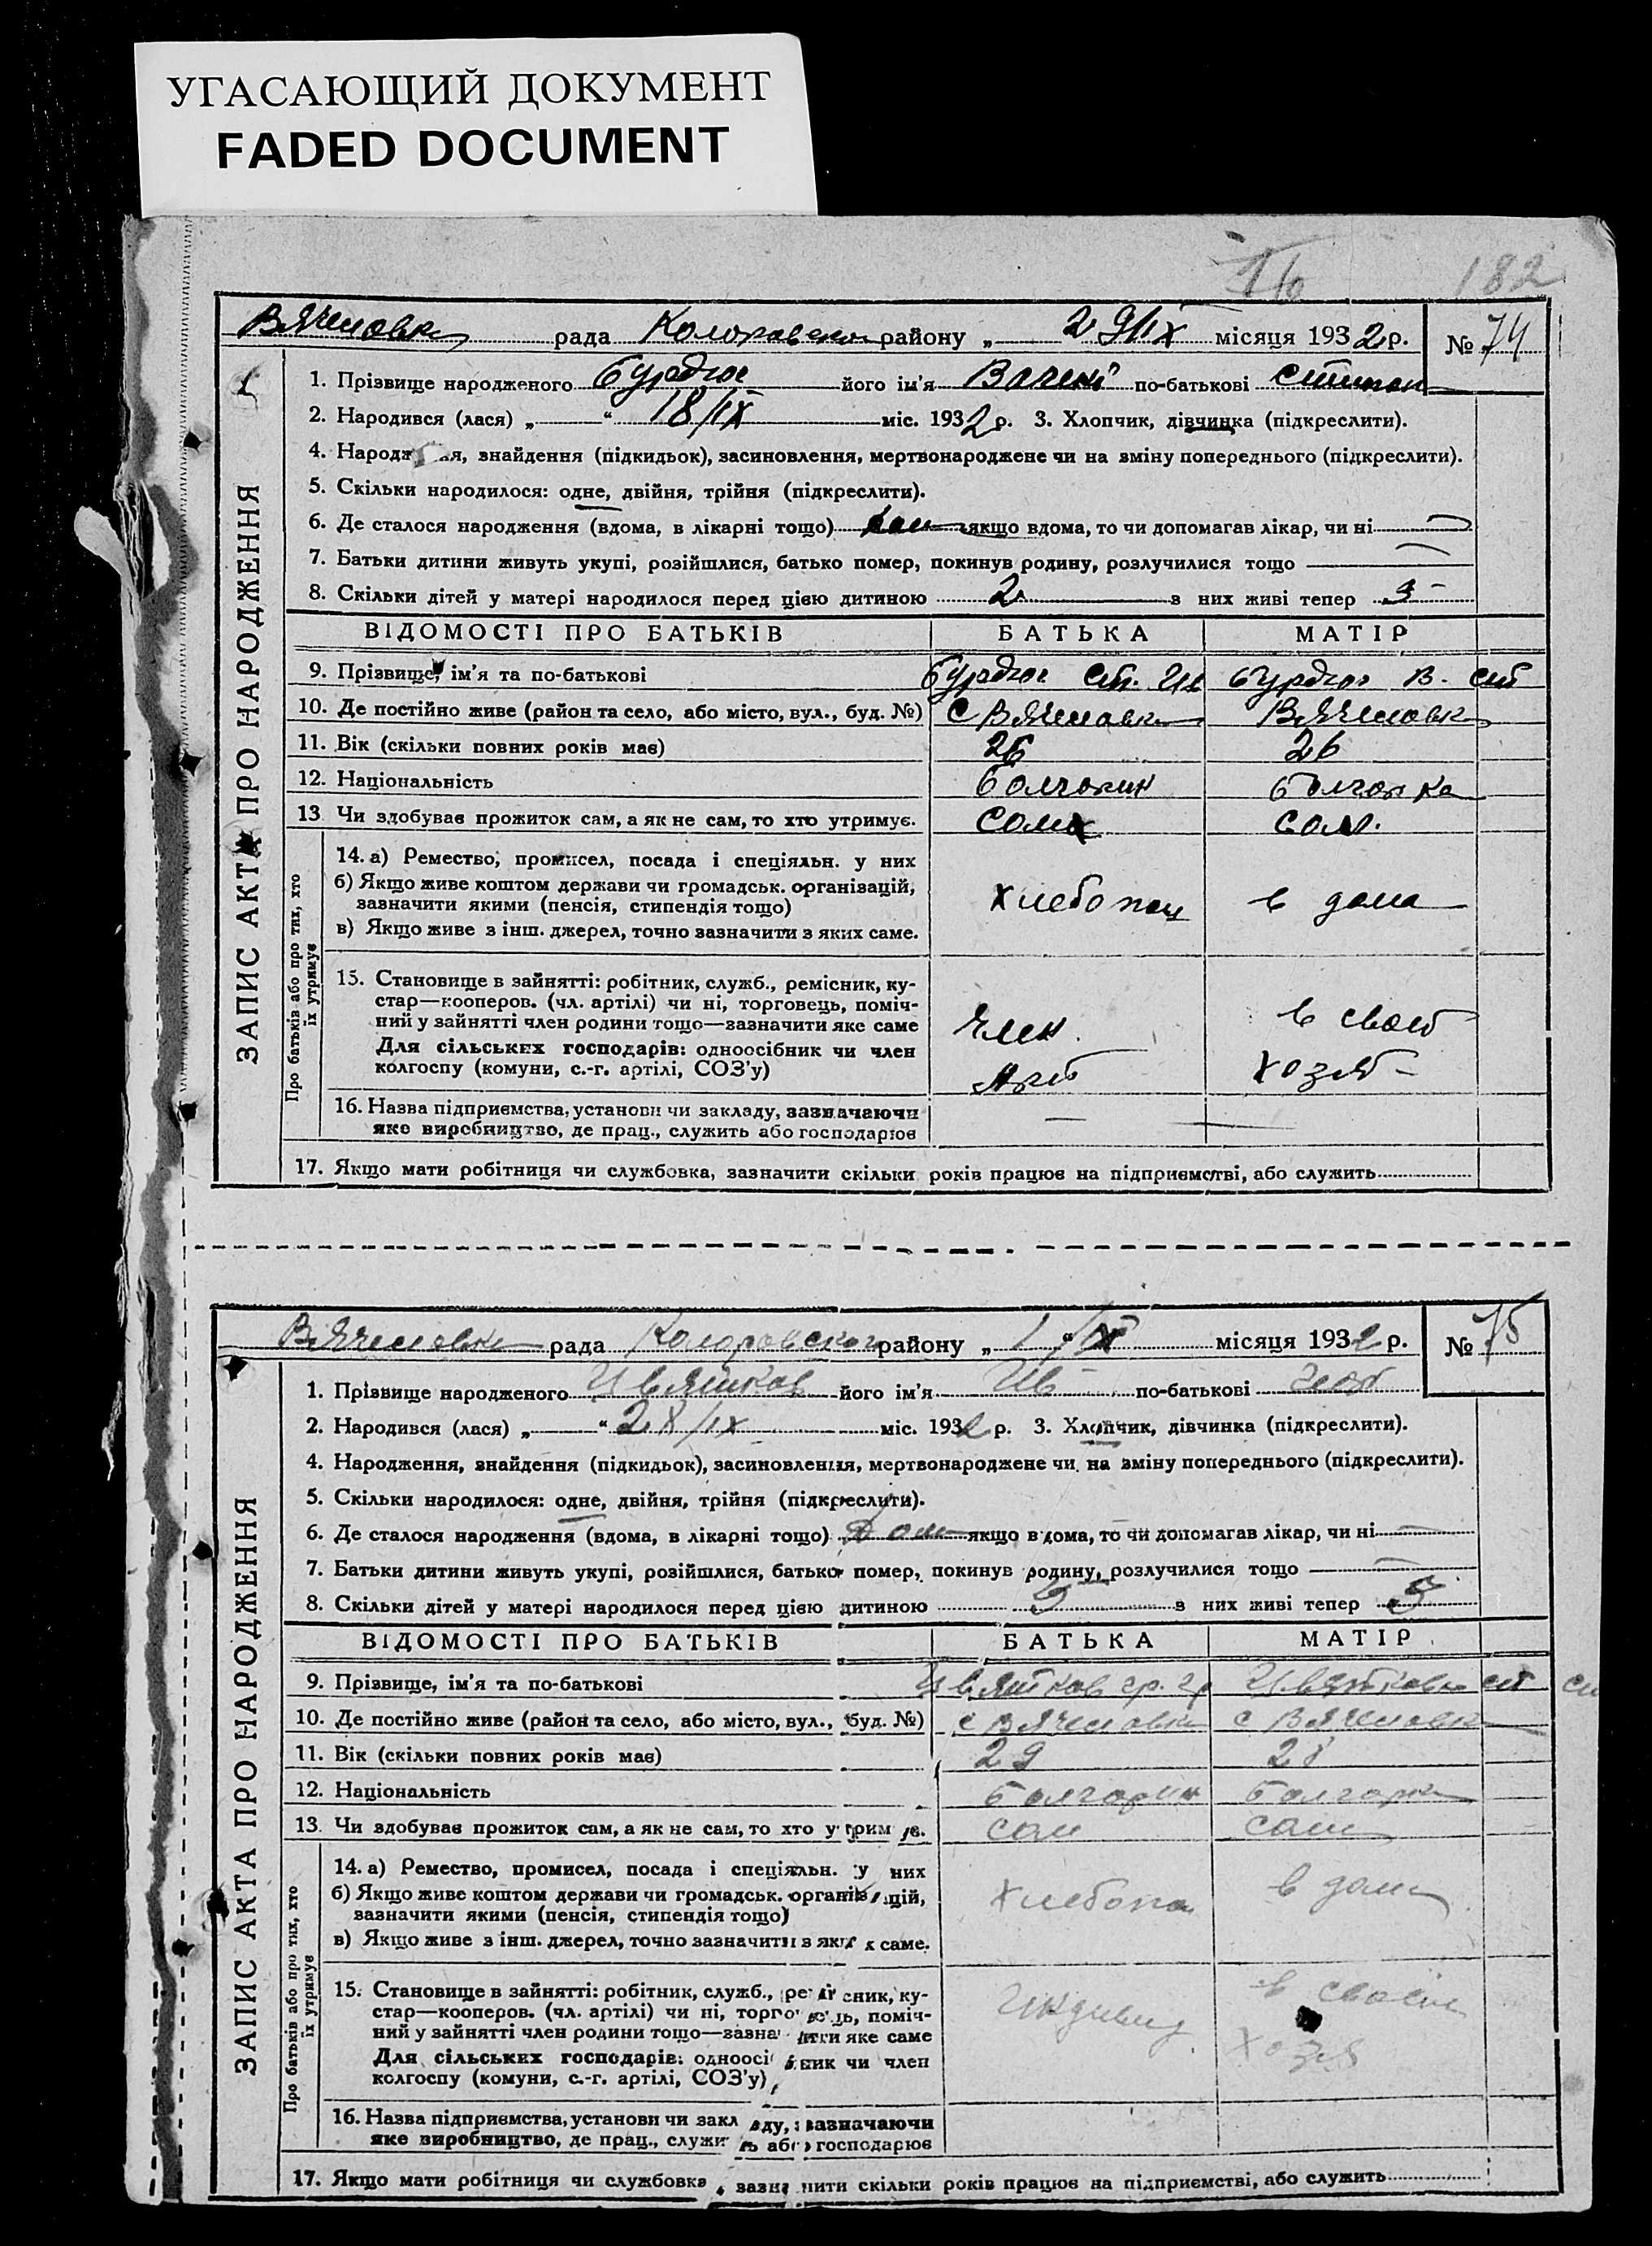 УГАСАЮЩИЙ ДОКУМЕНТ
FADED DOCUMENT
16 182
Вячеловка рада района „ 29/IX місяця 1932 р. № 74
ЗАПИС АКТА ПРО НАРОДЖЕННЯ
1. Прізвище народженого його ім'я по-батькові Степан
2. Народився (лася) „ “ 18/IX міс. 1932 р. 3. Хлопчик, дівчинка (підкреслити).
4. Народження, знайдення (підкидьок), засиновлення, мертвонароджене чи на зміну попереднього (підкреслити).
5. Скільки народилося: одне, двійня, трійня (підкреслити).
6. Де сталося народження (вдома, в лікарні тощо) дом якщо вдома, то чи допомагав лікар, чи ні
7. Батьки дитини живуть укупі, розійшлися, батько помер, покинув родину, розлучилися тощо —
8. Скільки дітей у матері народилося перед цією дитиною 2 з них живі тепер 3
ВІДОМОСТІ ПРО БАТЬКІВ БАТЬКА МАТІР
9. Прізвище, ім'я та по-батькові
10. Де постійно живе (район та село, або місто, вул., буд. №) с Вячеловка Вячеловка
11. Вік (скільки повних років має) 26 26
12. Національність болгарин болгарка
13 Чи здобуває прожиток сам, а як не сам, то хто утримує. сам сам.
Про батьків або про тих, хто їх утримує
14. а) Ремество, промисел, посада і спеціяльн. у них
б) Якщо живе коштом держави чи громадськ. організацій,
зазначити якими (пенсія, стипендія тощо) хлебопаш в дома
в) Якщо живе з інш. джерел, точно зазначити з яких саме.
15. Становище в зайнятті: робітник, служб., ремісник, ку-
стар—кооперов. (чл. артілі) чи ні, торговець, поміч-
ний у зайнятті член родини тощо—зазначити яке саме член. в своем
Для сільських господарів: одноосібник чи член
колгоспу (комуни, с.-г. артілі, СОЗ'у) Арт хозя
16. Назва підприємства, установи чи закладу, зазначаючи
яке виробництво, де прац., служить або господарює — —
17. Якщо мати робітниця чи службовка, зазначити скільки років працює на підприємстві, або служить
Вячеловка рада району „ 1 “ X місяця 1932 р. № 75
ЗАПИС АКТА ПРО НАРОДЖЕННЯ
1. Прізвище народженого Цвятков його ім'я Ив по-батькові
2. Народився (лася) „ “ 28/IX міс. 1932 р. 3. Хлопчик, дівчинка (підкреслити).
4. Народження, знайдення (підкидьок), засиновлення, мертвонароджене чи на зміну попереднього (підкреслити).
5. Скільки народилося: одне, двійня, трійня (підкреслити).
6. Де сталося народження (вдома, в лікарні тощо) дом якщо вдома, то чи допомагав лікар, чи ні —
7. Батьки дитини живуть укупі, розійшлися, батько помер, покинув родину, розлучилися тощо —
8. Скільки дітей у матері народилося перед цією дитиною з них живі тепер
ВІДОМОСТІ ПРО БАТЬКІВ БАТЬКА МАТІР
9. Прізвище, ім'я та по-батькові Цвятков гр. гр Цвяткова
10. Де постійно живе (район та село, або місто, вул., буд. №) с Вячеловка с Вячеловка
11. Вік (скільки повних років має) 29 28
12. Національність болгарин болгарка
13. Чи здобуває прожиток сам, а як не сам, то хто утримує. сам сам
Про батьків або про тих, хто їх утримує
14. а) Ремество, промисел, посада і спеціяльн. у них
б) Якщо живе коштом держави чи громадськ. організацій,
зазначити якими (пенсія, стипендія тощо) хлебопа в дома
в) Якщо живе з інш. джерел, точно зазначити з яких саме.
15. Становище в зайнятті: робітник, служб., ремісник, ку-
стар—кооперов. (чл. артілі) чи ні, торговець, поміч-
ний у зайнятті член родини тощо—зазначити яке саме индивид в своем
Для сільських господарів: одноосібник чи член
колгоспу (комуни, с.-г. артілі, СОЗ'у) хозя
16. Назва підприємства, установи чи закладу, зазначаючи
яке виробництво, де прац., служить або господарює
17. Якщо мати робітниця чи службовка, зазначити скільки років працює на підприємстві, або служить